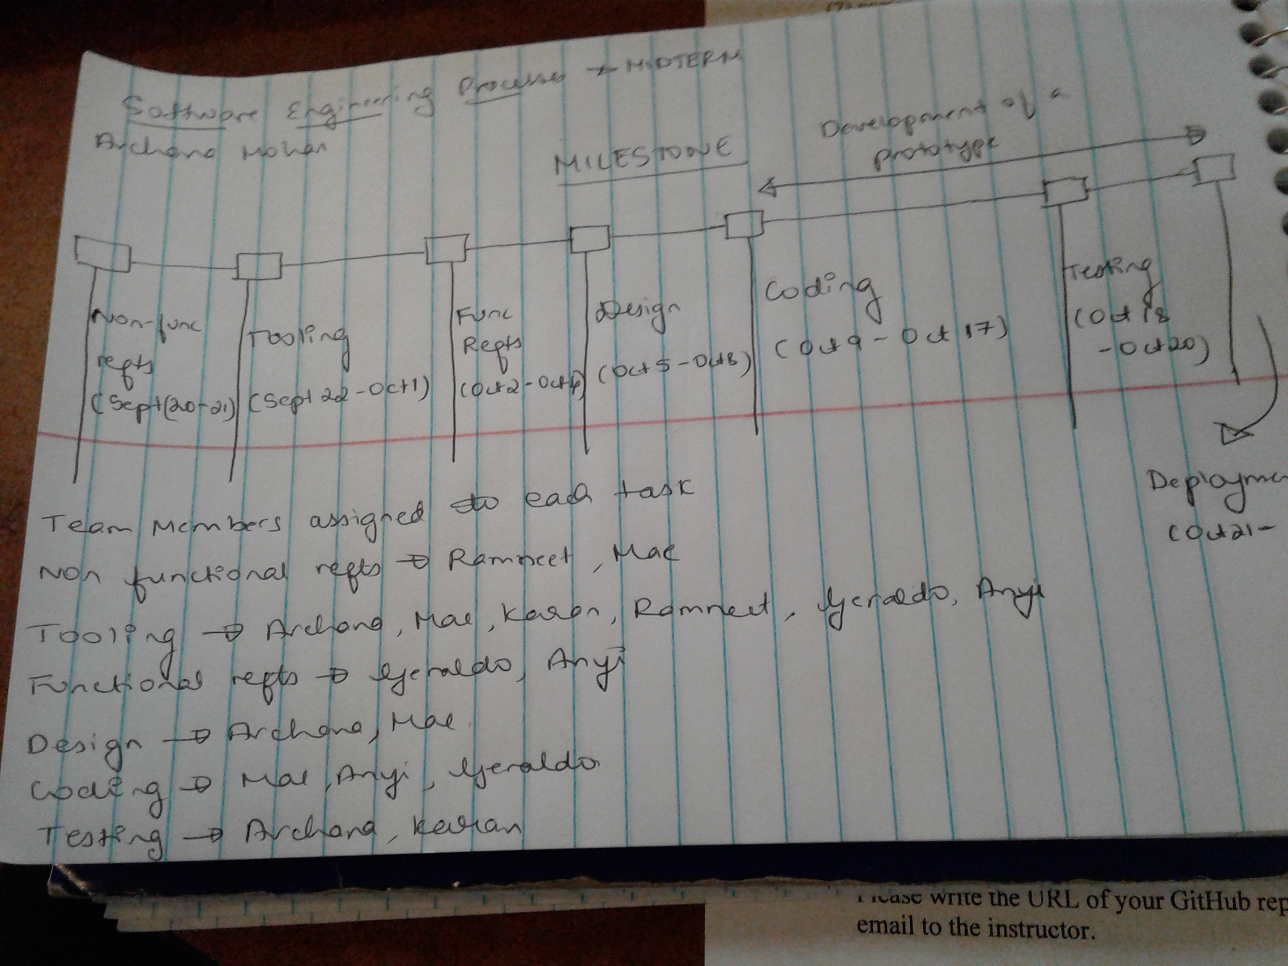 Software Engineering Processes → MIDTERM
Archana Mohan
MILESTONE
Development of a
prototype
Non-func
reqts
(Sept(20-21)
Tooling
(Sept 22 - Oct 1)
Func
Reqts
(Oct 2 - Oct 4)
Design
(Oct 5 - Oct 8)
Coding
(Oct 9 - Oct 17)
Testing
(Oct 18
- Oct 20)
Deployme
(Oct 21 -
Team Members assigned to each task
Non functional reqts → Ramneet, Mae
Tooling → Archana, Mae, Karan, Ramneet, Geraldo, Anyi
Functional reqts → Geraldo, Anyi
Design → Archana, Mae.
Coding → Mae, Anyi, Geraldo
Testing → Archana, Karan
Please write the URL of your GitHub rep
email to the instructor.